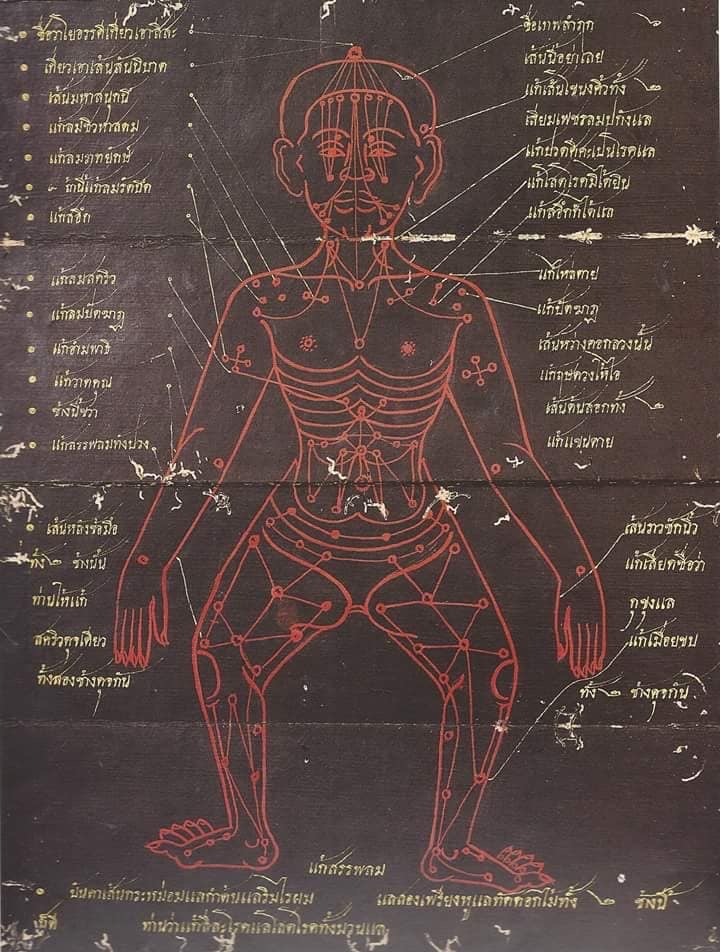 ชื่อวาโยธรรคีเที่ยวเอาสีสะ
เที่ยวเอาเส้นสันนิบาต
เส้นมหาสนุกนี้
แก้ลมชิวหาสดม
แก้ลมราทยักษ์
๒ ข้างนี้แก้ลมรัดปัด
แก้สอึก
แก้ลมสคริว
แก้ลมปัตฆาฏ
แก้อำมพาธิ
แก้วาตคุณ
ข้างนี้ขวา
แก้สรรพลมทังปวง
เส้นหลังข้อมือ
ทั้ง ๒ ข้างนั้น
ท่านให้แก้
สคริวดุจเดียว
ทั้งสองข้างดุจกัน
ชื่อเทพลำภุก
เส้นนี้อย่าเลย
แก้เส้นเขนงคิ้วทั้ง ๒
เสียมเฟชรลมปทังแล
แก้ปวดศีศะเปนโรคแล
แก้โสตโรคมิได้ยิน
แก้สอึกก็ได้แล
แก้ไหล่ตาย
แก้ปัตฆาฏ
เส้นหว่างคอกลวงนั้น
แก้ฤษดวงให้ไอ
เส้นต้นสอกทั้ง ๒
แก้แขนตาย
เส้นราวชักนิ้ว
แก้เสียดชื่อว่า
แก้เมื่อยขบ
ทั้ง ๒ ข้างดุจกัน
แก้สรรพลม
บันดาเส้นกระหม่อมแลกำด้นแลริมไรผม แลสองเพรียงหูแลทัดดอกไม้ทั้ง ๒ ข้างนี้
ท่านว่าแก้สีสะโรคแลโสตโรคทั้งมวนแล